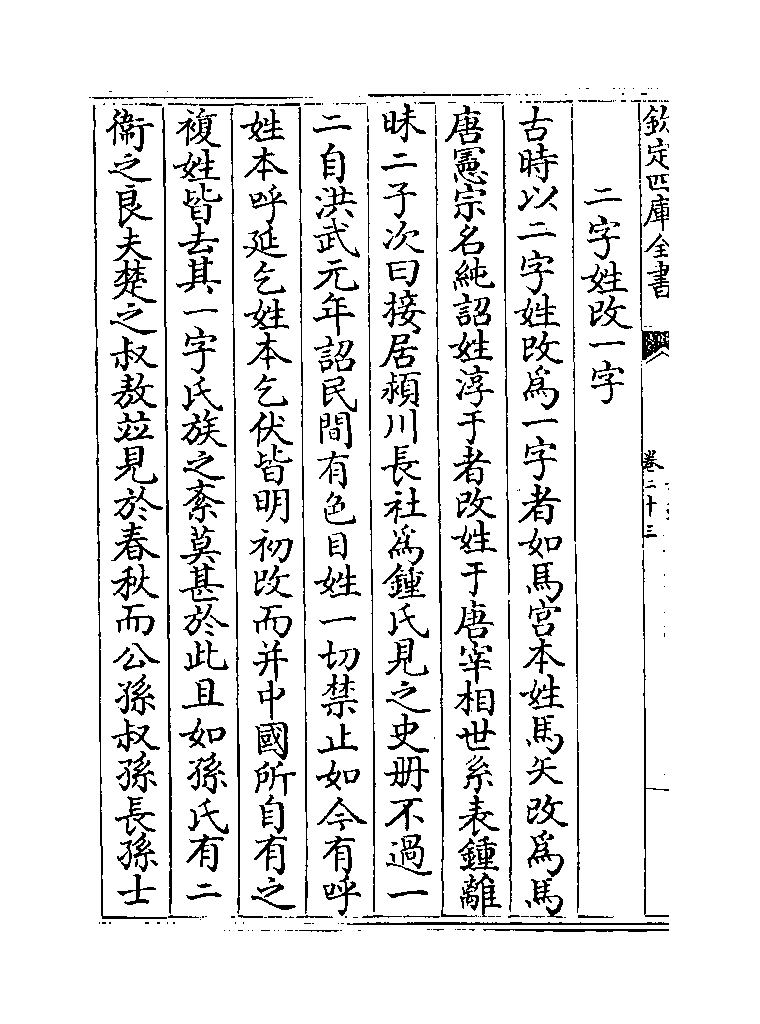 欽定四庫全書
卷二十三
二字姓改一字
古時以二字姓改爲一字者如馬宮本姓馬矢改爲馬
唐憲宗名純詔姓淳于者改姓于唐宰相世系表鍾離
昧二子次曰接居潁川長社爲鍾氏見之史册不過一
二自洪武元年詔民間有色目姓一切禁止如今有呼
姓本呼延乞姓本乞伏皆明初改而并中國所自有之
複姓皆去其一字氏族之紊莫甚於此且如孫氏有二
衞之良夫楚之叔敖竝見於春秋而公孫叔孫長孫士